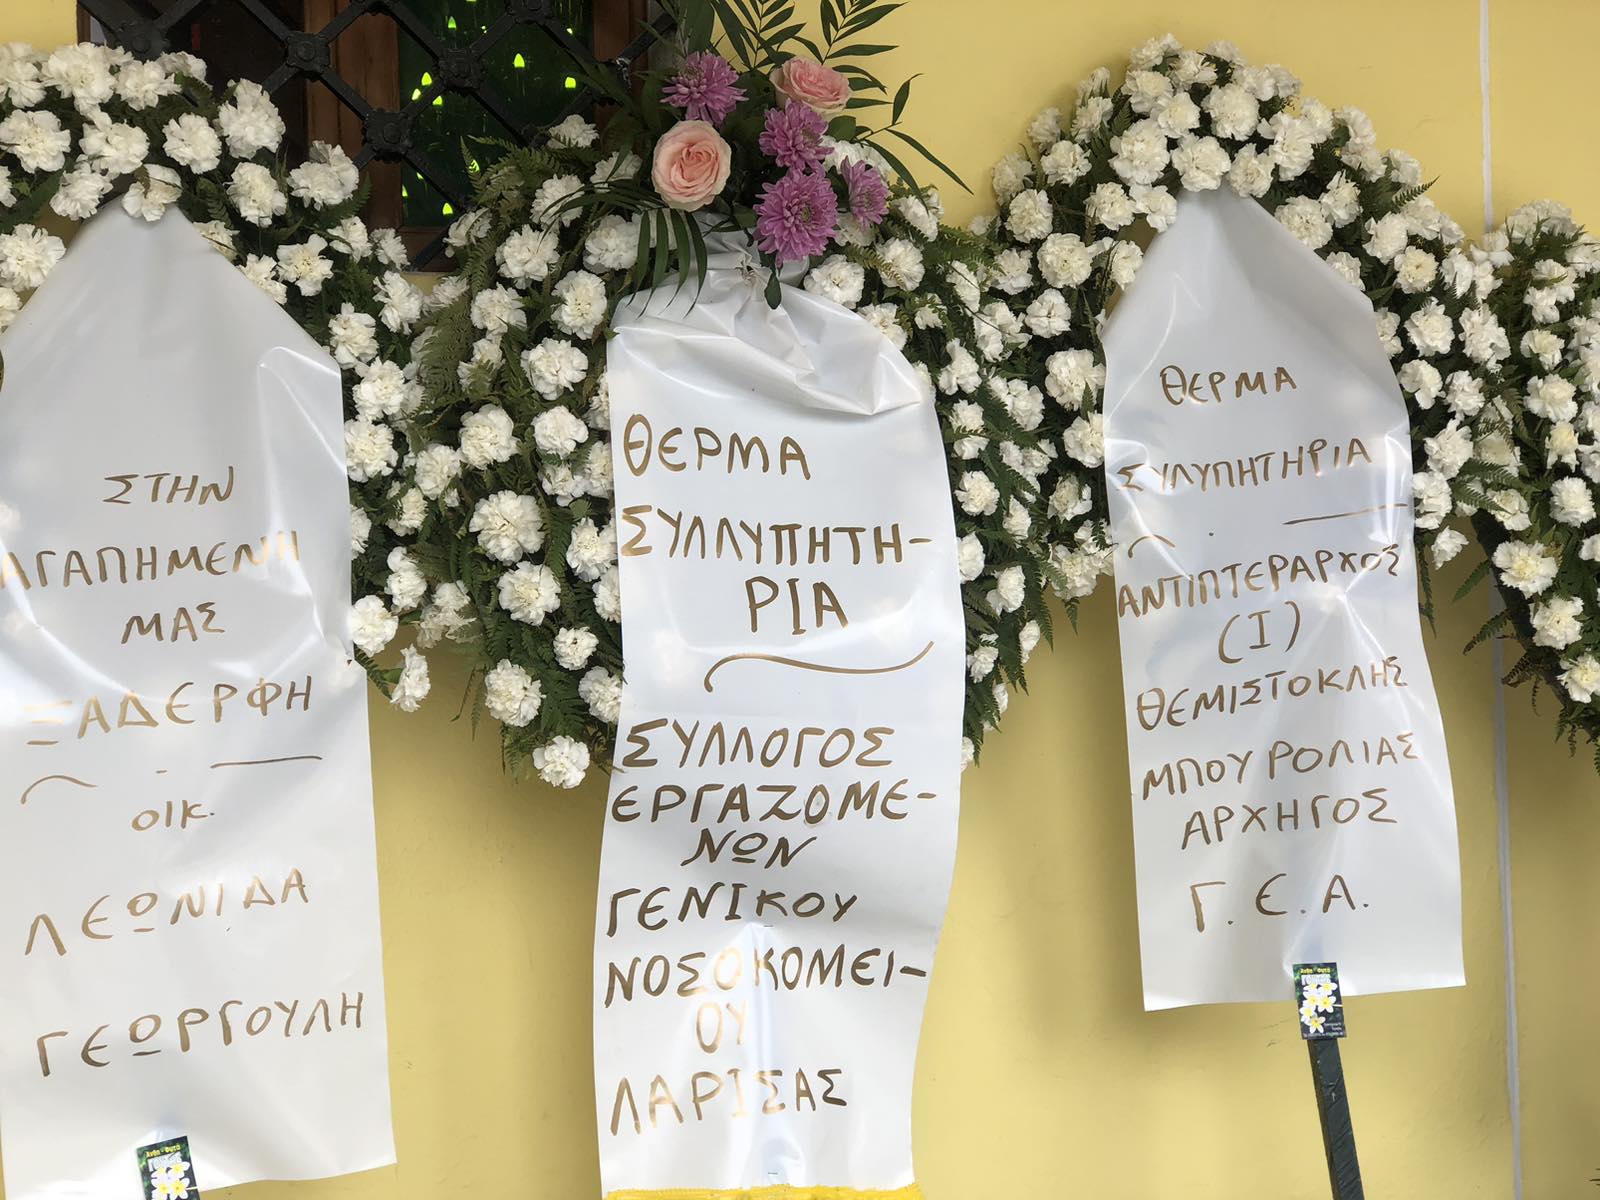 ΣΤΗΝ
ΑΓΑΠΗΜΕΝΗ
ΜΑΣ
ΞΑΔΕΡΦΗ
ΟΙΚ.
ΛΕΩΝΙΔΑ
ΓΕΩΡΓΟΥΛΗ
ΘΕΡΜΑ
ΣΥΛΛΥΠΗΤΗ-
ΡΙΑ
ΣΥΛΛΟΓΟΣ
ΕΡΓΑΖΟΜΕ-
ΝΩΝ
ΓΕΝΙΚΟΥ
ΝΟΣΟΚΟΜΕΙ-
ΟΥ
ΛΑΡΙΣΑΣ
ΘΕΡΜΑ
ΣΥΛΥΠΗΤΗΡΙΑ
ΑΝΤΙΠΤΕΡΑΡΧΟΣ
(Ι)
ΘΕΜΙΣΤΟΚΛΗΣ
ΜΠΟΥΡΟΛΙΑΣ
ΑΡΧΗΓΟΣ
Γ.Ε.Α.